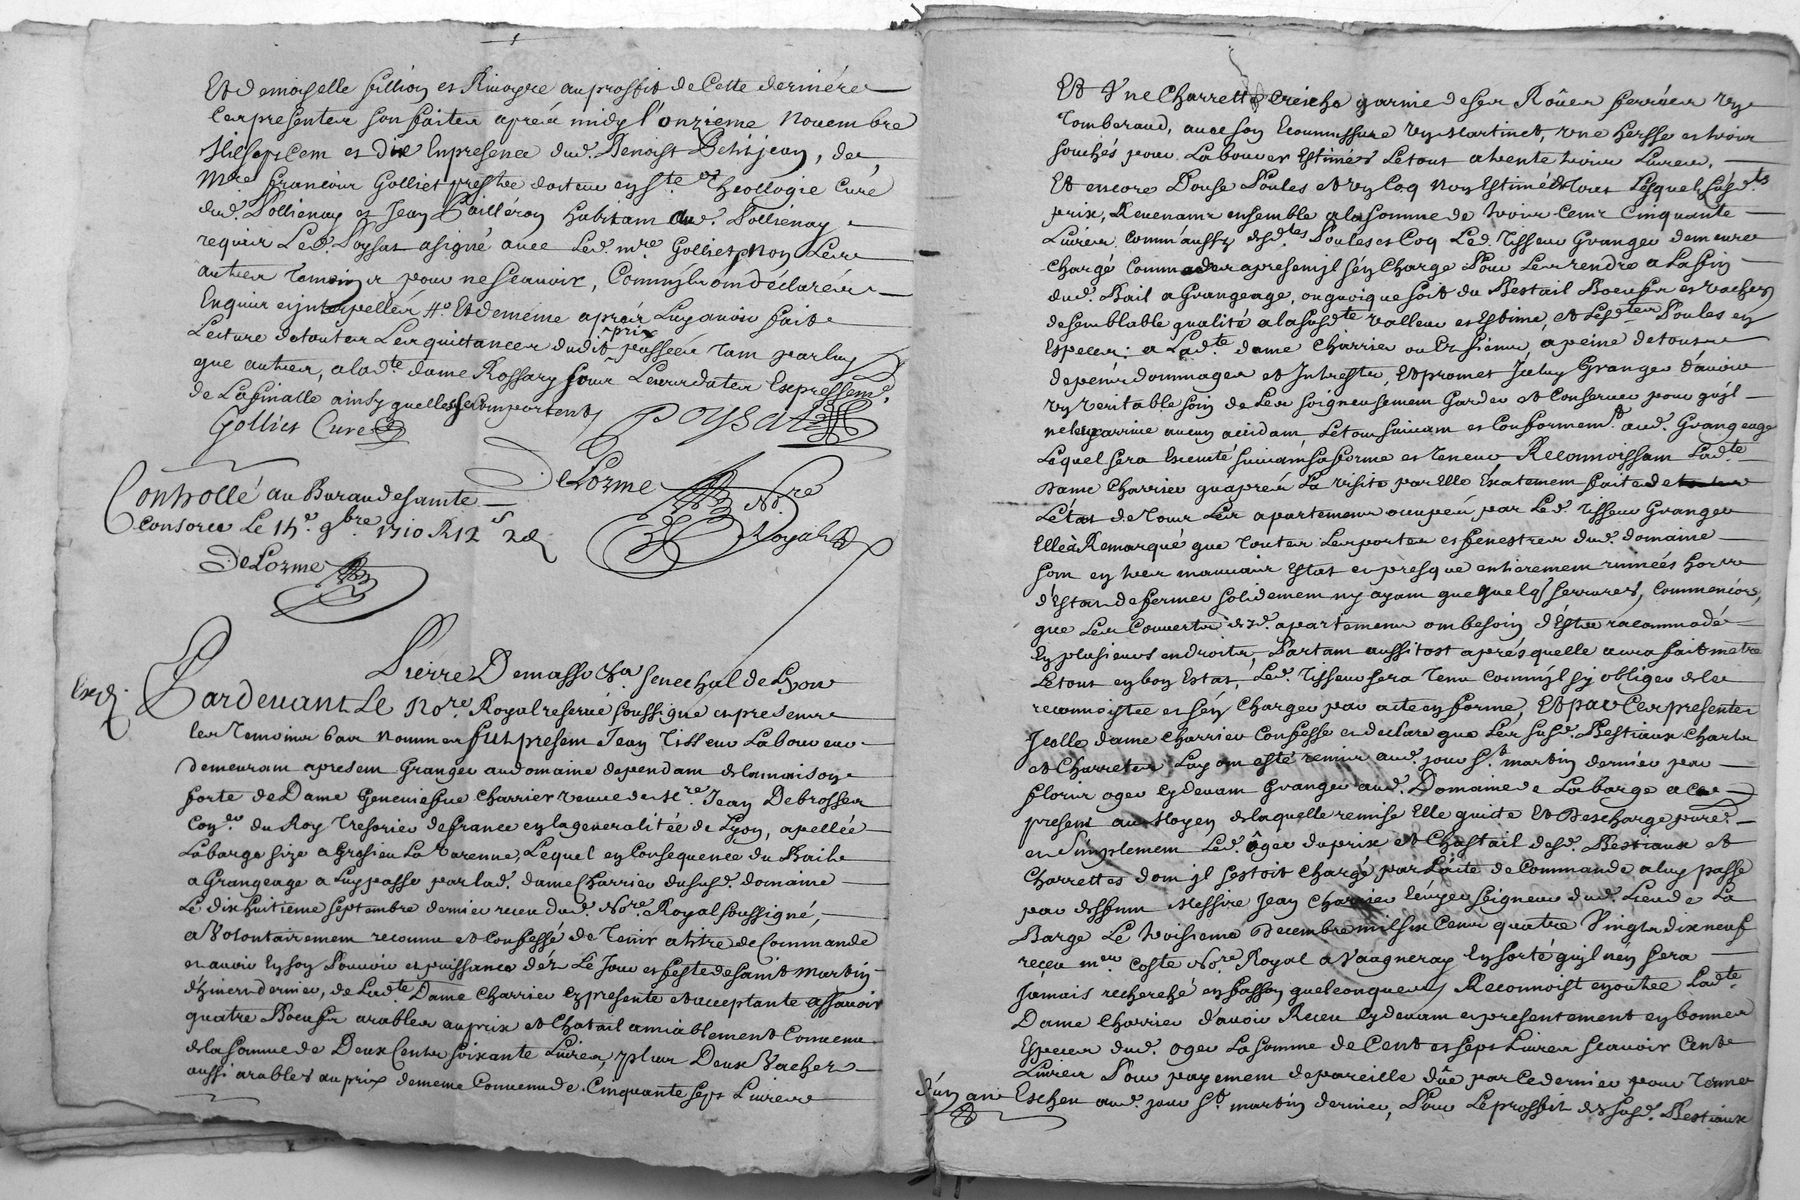 Et demoiselle fillion et Rivoyre au proffit de Cette derniére
Les presentes son faites aprés midy l'onzieme Novembre
Mil sept cem et dix En presence dud. Benoist Petitjean, de
Mre francois Golliet prestre docteur en Ste Theollogie Curé
dud. Pollienay et Jean habitam dud. Pollienay
requis Led. Poysat a signé avec Led. mre Golliet, non Les
autres Temoins pour ne scavoir, Comm'ils om déclaré
Enquis et interpellés Et de meme aprés Luy avoir fait
Lecture de toutes Les quittances dudit prix passées tam par luy
que autres, a lad.te dame Rossary sous Leurs dates Expressem.
de La finalle ainsy quelles se Comportent
Gollier Curé Poysat
DeLorme No.re Royal
Controllé au Bureau de sainte
Consorce Le 15e 9bre 1710 R 12 s 2d
DeLorme
Pierre Demasso Ch.er senechal de Lyon
Exp.
Pardevant Le No.re Royal reservé soussigné et presens
les Temoins bas nommes fut presem Jean Tisseur Laboureur
demeuram apresem Granger au domaine dependam de la maison
forte de Dame Geneviefve Charrier veuve de Mre Jean Debrosses
Con.er du Roy Tresorier de france en la generalitée de Lyon, apellée
Labarge size a Gresieu La Varenne, Lequel en Consequence du Bail
a Grangeage a Luy passé par lad. dame Charrier du susd. domaine
Le dix huitieme septembre dernier receu dud. No.re Royal soussigné,
a Volontairement reconnu et Confessé de Tenir a titre de Commande
et avoir En son Pouvoir et puissance déz Le Jour et feste de saint Martin
d'hiver dernier, de Lad.te Dame Charrier cy presente et acceptante assavoir
quatre Boeufs arables au prix et Chatail amiablement Convenu
de la somme de Deux Cents soixante Livres, plus Deux Vaches
aussi arables au prix de meme Convenu de Cinquante sept Livres
Et Une Charrette garnie de ses Roües ferrées Un
Tomberaud, avec son Un Martinet, Une hersse et trois
pour Labourer Estimés Le tout a trente trois Livres,
Et encore Douse Poules et un Coq non Estimés Tous Lesquels susd.ts
prix, Revenant ensemble a la somme de trois Cent Cinquante
Livres comm'aussy desd.tes Poules et Coq Led. Tisseur Granger demeure
chargé comme des apresem il s'en Charge Pour Les rendre a La fin
dud. Bail a Grangeage, ou quoique soit du Bestail Boeufs et vaches
de semblable qualité a la susd.te valleur et Estime, et Lesd.tes Poules en
Especes: a Lad.te dame Charrier ou Es siens, a peine de tous
depens dommages et Interests, Et promet Iceluy Granger d'avoir
un veritable soin de Les soigneusement Garder et Conserver pour qu'il
ne leur arrive aucun accidam, Le tout suivam et Conformem.t aud. Grangeage
Lequel sera Executé suivam sa forme et teneur Reconnoissam Lad.te
Dame Charrier qu'aprés La visite par Elle Exatement faite de
L'état de Tous Les apartemens occupés par Led. Tisseur Granger
Elle à Remarqué que Toutes Les portes et fenestres dud. domaine
som en tres mauvais Estat et presque entierement ruinées hors
d'Estat de fermer solidemem n'y ayam que quelqs serrures, commencés,
que Les Couverts desd. apartemens om besoin d'Estre racommodé
En plusieurs endroits, Partam aussitost aprés quelle aura fait metre
Le tout en bon Estat, Led. Tisseur sera Tenu comm'il s'y oblige de les
reconnoistre et s'en Charger par acte en forme, Et par Ces presentes
Icelle dame Charrier Confesse et declare que Les susd. Bestiaux Chars
et Charretes Luy om esté remis aud. jour St martin dernier par
floris oger cy devam Granger aud. Domaine de La barge a ce
presem au Moyen de laquelle remise Elle quitte Et Descharge pure
et Simplemem Led. Oger du prix et Chastail desd. Bestiaux et
Charrettes dom il s'estoit Chargé par L'acte de Commande a luy passé
par deffunt Messire Jean Charrier Ecuyer seigneur dud. Lieu de La
Barge Le troisieme Decembre mil six Cent quatre Vingts dix neuf
receu me Coste No.re Royal a Vaugneray En sorte qu'il n'en sera
Jamais recherché en fasson quelconque Reconnoist en outre Lad.te
Dame Charrier d'avoir Receu cy devam et presentement en bonnes
Especes dud. Oger La somme de Cent et sept Livres scavoir Cent
Livres Pour payemem de pareille düe par Ce dernier pour Terme
d'un an Escheu aud. jour St martin dernier, Pour Le proffit desd. susd. Bestiaux